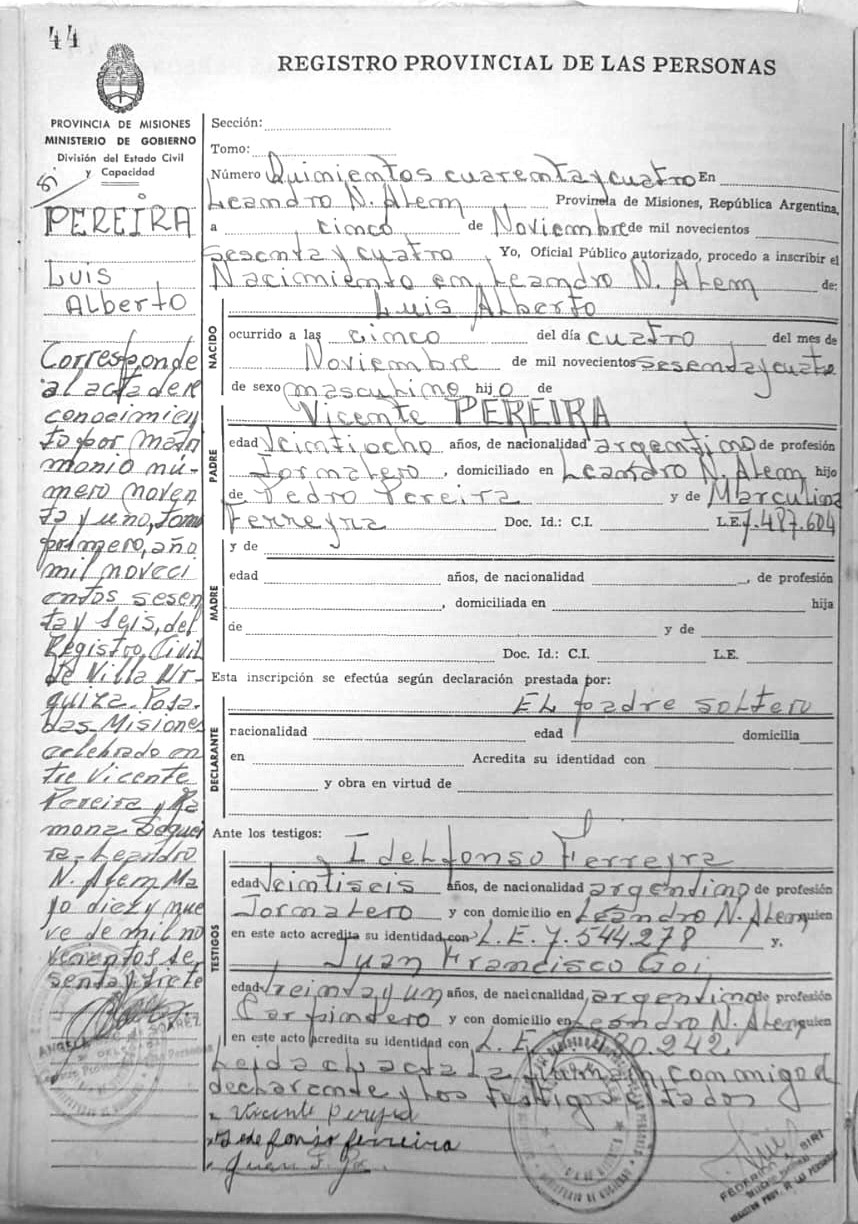 44
REGISTRO PROVINCIAL DE LAS PERSONAS
PROVINCIA DE MISIONES
MINISTERIO DE GOBIERNO
División del Estado Civil
y Capacidad
PEREIRA
Luis
Alberto
Corresponde
al acta de re
conocimien
to por matri
monio nú-
mero noven
ta y uno, tomo
primero, año
mil noveci
entos sesen
ta y seis, del
Registro Civil
de Villa Ur-
quiza. Posa-
das Misiones
celebrado en
tre Vicente
Pereira y Ra
mona Sequei
ra. Leandro
N. Alem Ma
yo diez y nue
ve de mil no
vecientos se
senta y siete
Sección:
Tomo:
Número Quinientos cuarenta y cuatro En
Leandro N. Alem Provincia de Misiones, República Argentina,
a cinco de Noviembre de mil novecientos
sesenta y cuatro Yo, Oficial Público autorizado, procedo a inscribir el
Nacimiento en Leandro N. Alem de:
NACIDO
Luis Alberto
ocurrido a las cinco del día cuatro del mes de
Noviembre de mil novecientos sesenta y cuatro
de sexo masculino hijo de
PADRE
Vicente PEREIRA
edad veintiocho años, de nacionalidad argentino de profesión
Jornalero, domiciliado en Leandro N. Alem hijo
de Pedro Pereira y de Marculina
Ferreyra Doc. Id.: C.I. L.E. 7.487.604
MADRE
y de
edad años, de nacionalidad , de profesión
, domiciliada en hija
de y de
Doc. Id.: C.I. L.E.
Esta inscripción se efectúa según declaración prestada por:
DECLARANTE
El padre soltero
nacionalidad edad domicilia
en Acredita su identidad con
y obra en virtud de
Ante los testigos:
TESTIGOS
Ildelfonso Ferreyra
edad veintiseis años, de nacionalidad argentino de profesión
Jornalero y con domicilio en Leandro N. Alem quien
en este acto acredita su identidad con L.E. 7.544.278 y,
Juan Francisco Goi
edad treinta y un años, de nacionalidad, argentino de profesión
Carpintero y con domicilio en Leandro N. Alem quien
en este acto acredita su identidad con L.E. 20.242
Leida el acta la firman conmigo el
declarante y los testigos citados
Vicente Pereira
Ildefonso ferreira
Juan F. Goi
FEDERICO SIRI